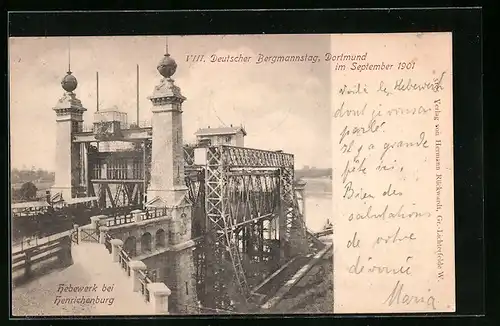 VIII. Deutscher Bergmannstag, Dortmund
im September 1901
Voilà les Hebewerk
dont je vous ai
parlé.
Il y a grande
fête ici,
Bien des
salutations
de votre
dévouée
Maria
Hebewerk bei
Henrichenburg
Verlag von Hermann Rückwardt, Gr.-Lichterfelde W.